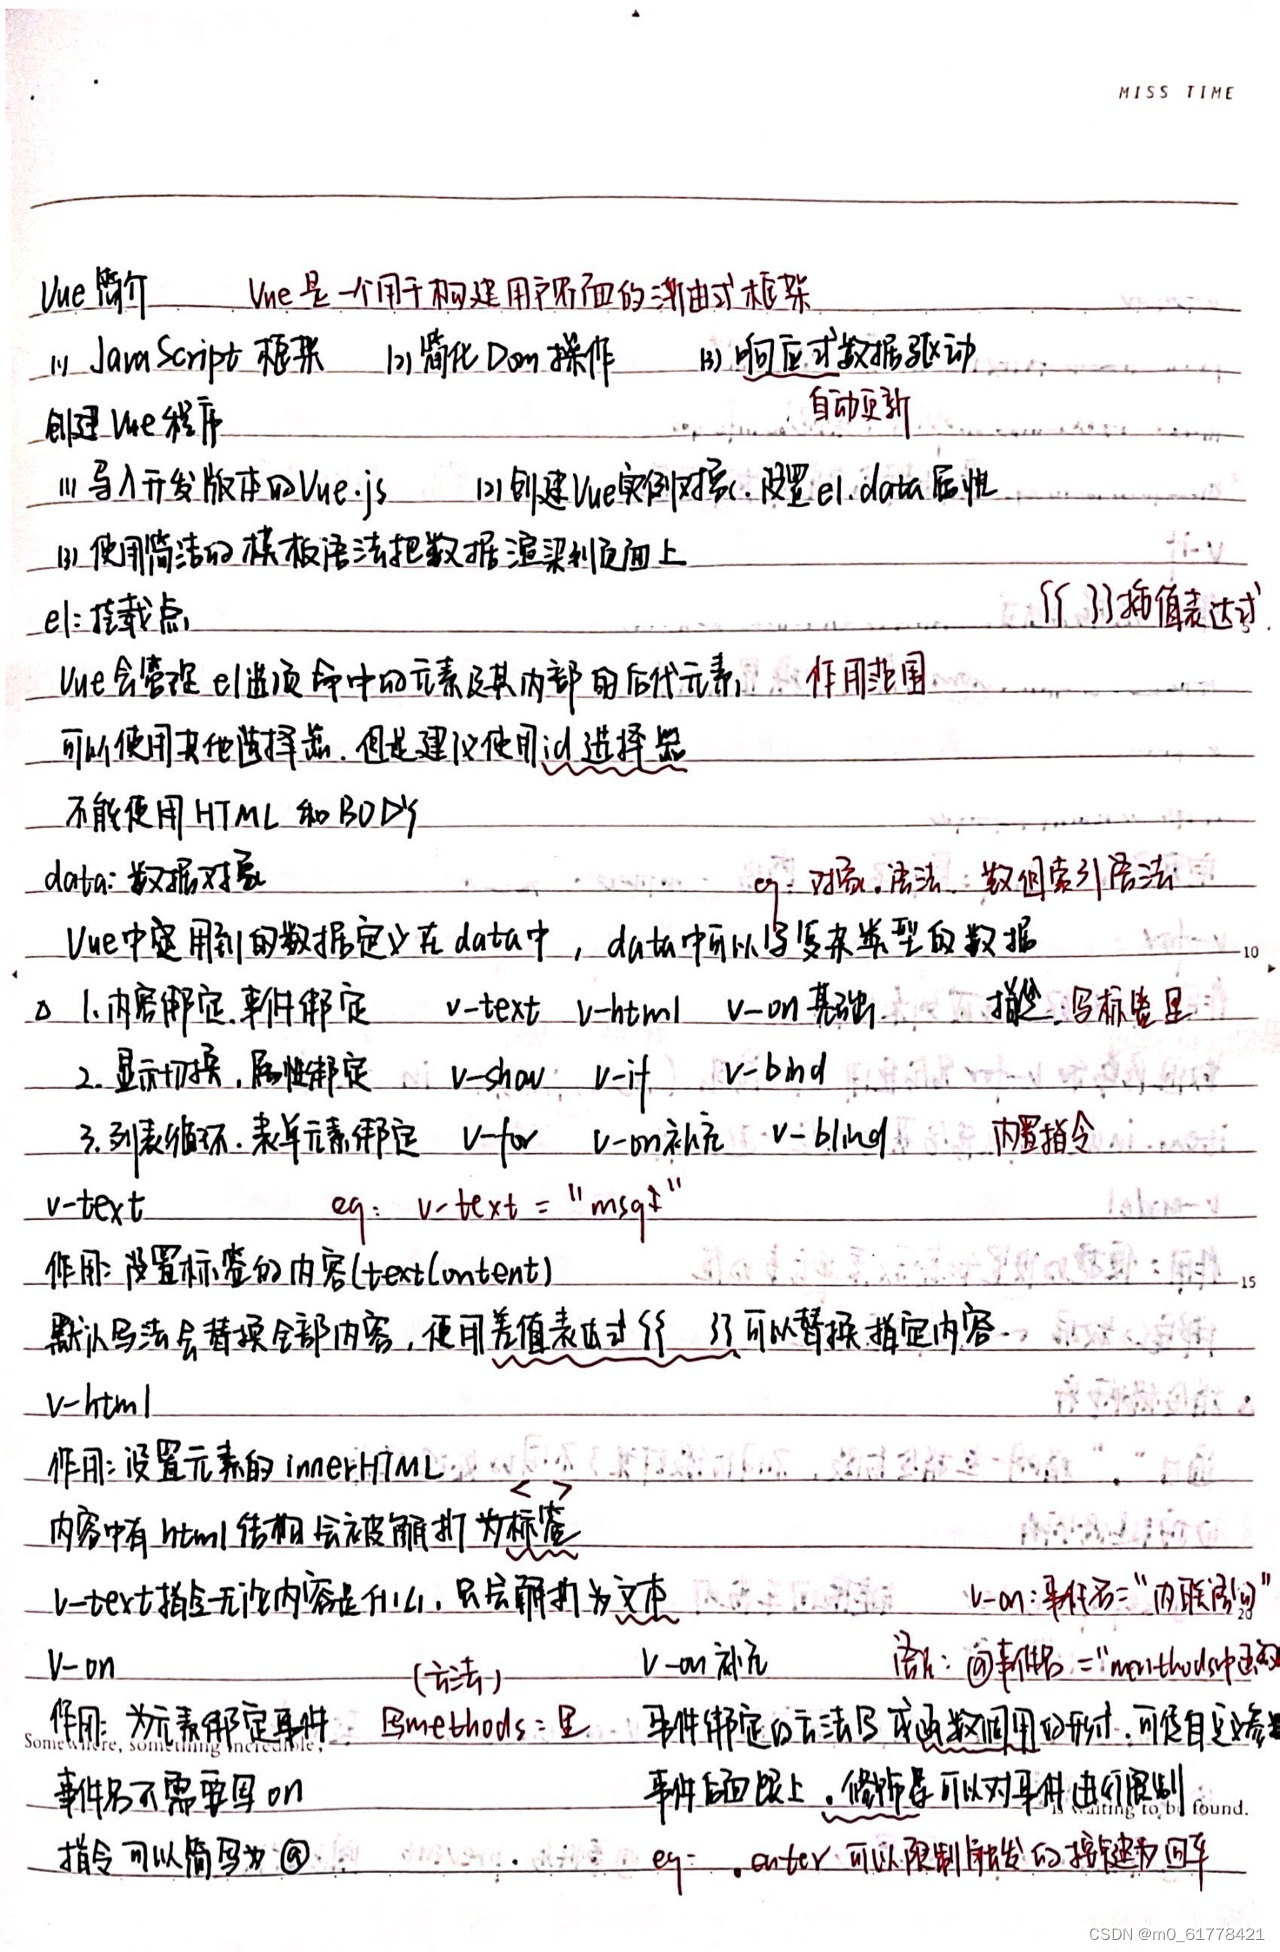 MISS TIME
Vue简介 Vue是一个用于构建用户界面的渐进式框架
(1) JavaScript 框架 (2) 简化Dom操作 (3) 响应式数据驱动
自动更新
创建Vue程序
(1) 导入开发版本的Vue.js (2) 创建Vue实例对象.设置el.data属性
(3) 使用简洁的模板语法把数据渲染到页面上
el:挂载点 {{ }}插值表达式
Vue会管理el选项命中的元素及其内部的后代元素 作用范围
可以使用其他选择器.但是建议使用id选择器
不能使用HTML 和BODY
data:数据对象 eg:对象.语法.数组索引语法
Vue中定用到的数据定义在data中,data中可以写复杂类型的数据
10
△ 1.内容绑定.事件绑定 v-text v-html v-on基础 指令.写标签里
2.显示切换.属性绑定 v-show v-if v-bind
3.列表循环.表单元素绑定 v-for v-on补充 v-blind 内置指令
v-text eg: v-text = "msg"
作用:设置标签的内容(textContent)
15
默认写法会替换全部内容,使用差值表达式{{ }}可以替换指定内容.
v-html
作用:设置元素的innerHTML
< >
内容中有html结构会被解析为标签
v-text指令无论内容是什么,只会解析为文本 v-on:事件名="内联语句"
20
v-on (方法) v-on补充 语法: @事件名="methods中函数
作用:为元素绑定事件 写methods:里 事件绑定的方法写成函数调用的形式,可传自定义参数
Somewhere, something incredible,
事件名不需要写on 事件后面跟上.修饰符可以对事件进行限制
is waiting to be found.
指令可以简写为@ eg: .enter 可以限制触发的按键为回车
CSDN @m0_61778421